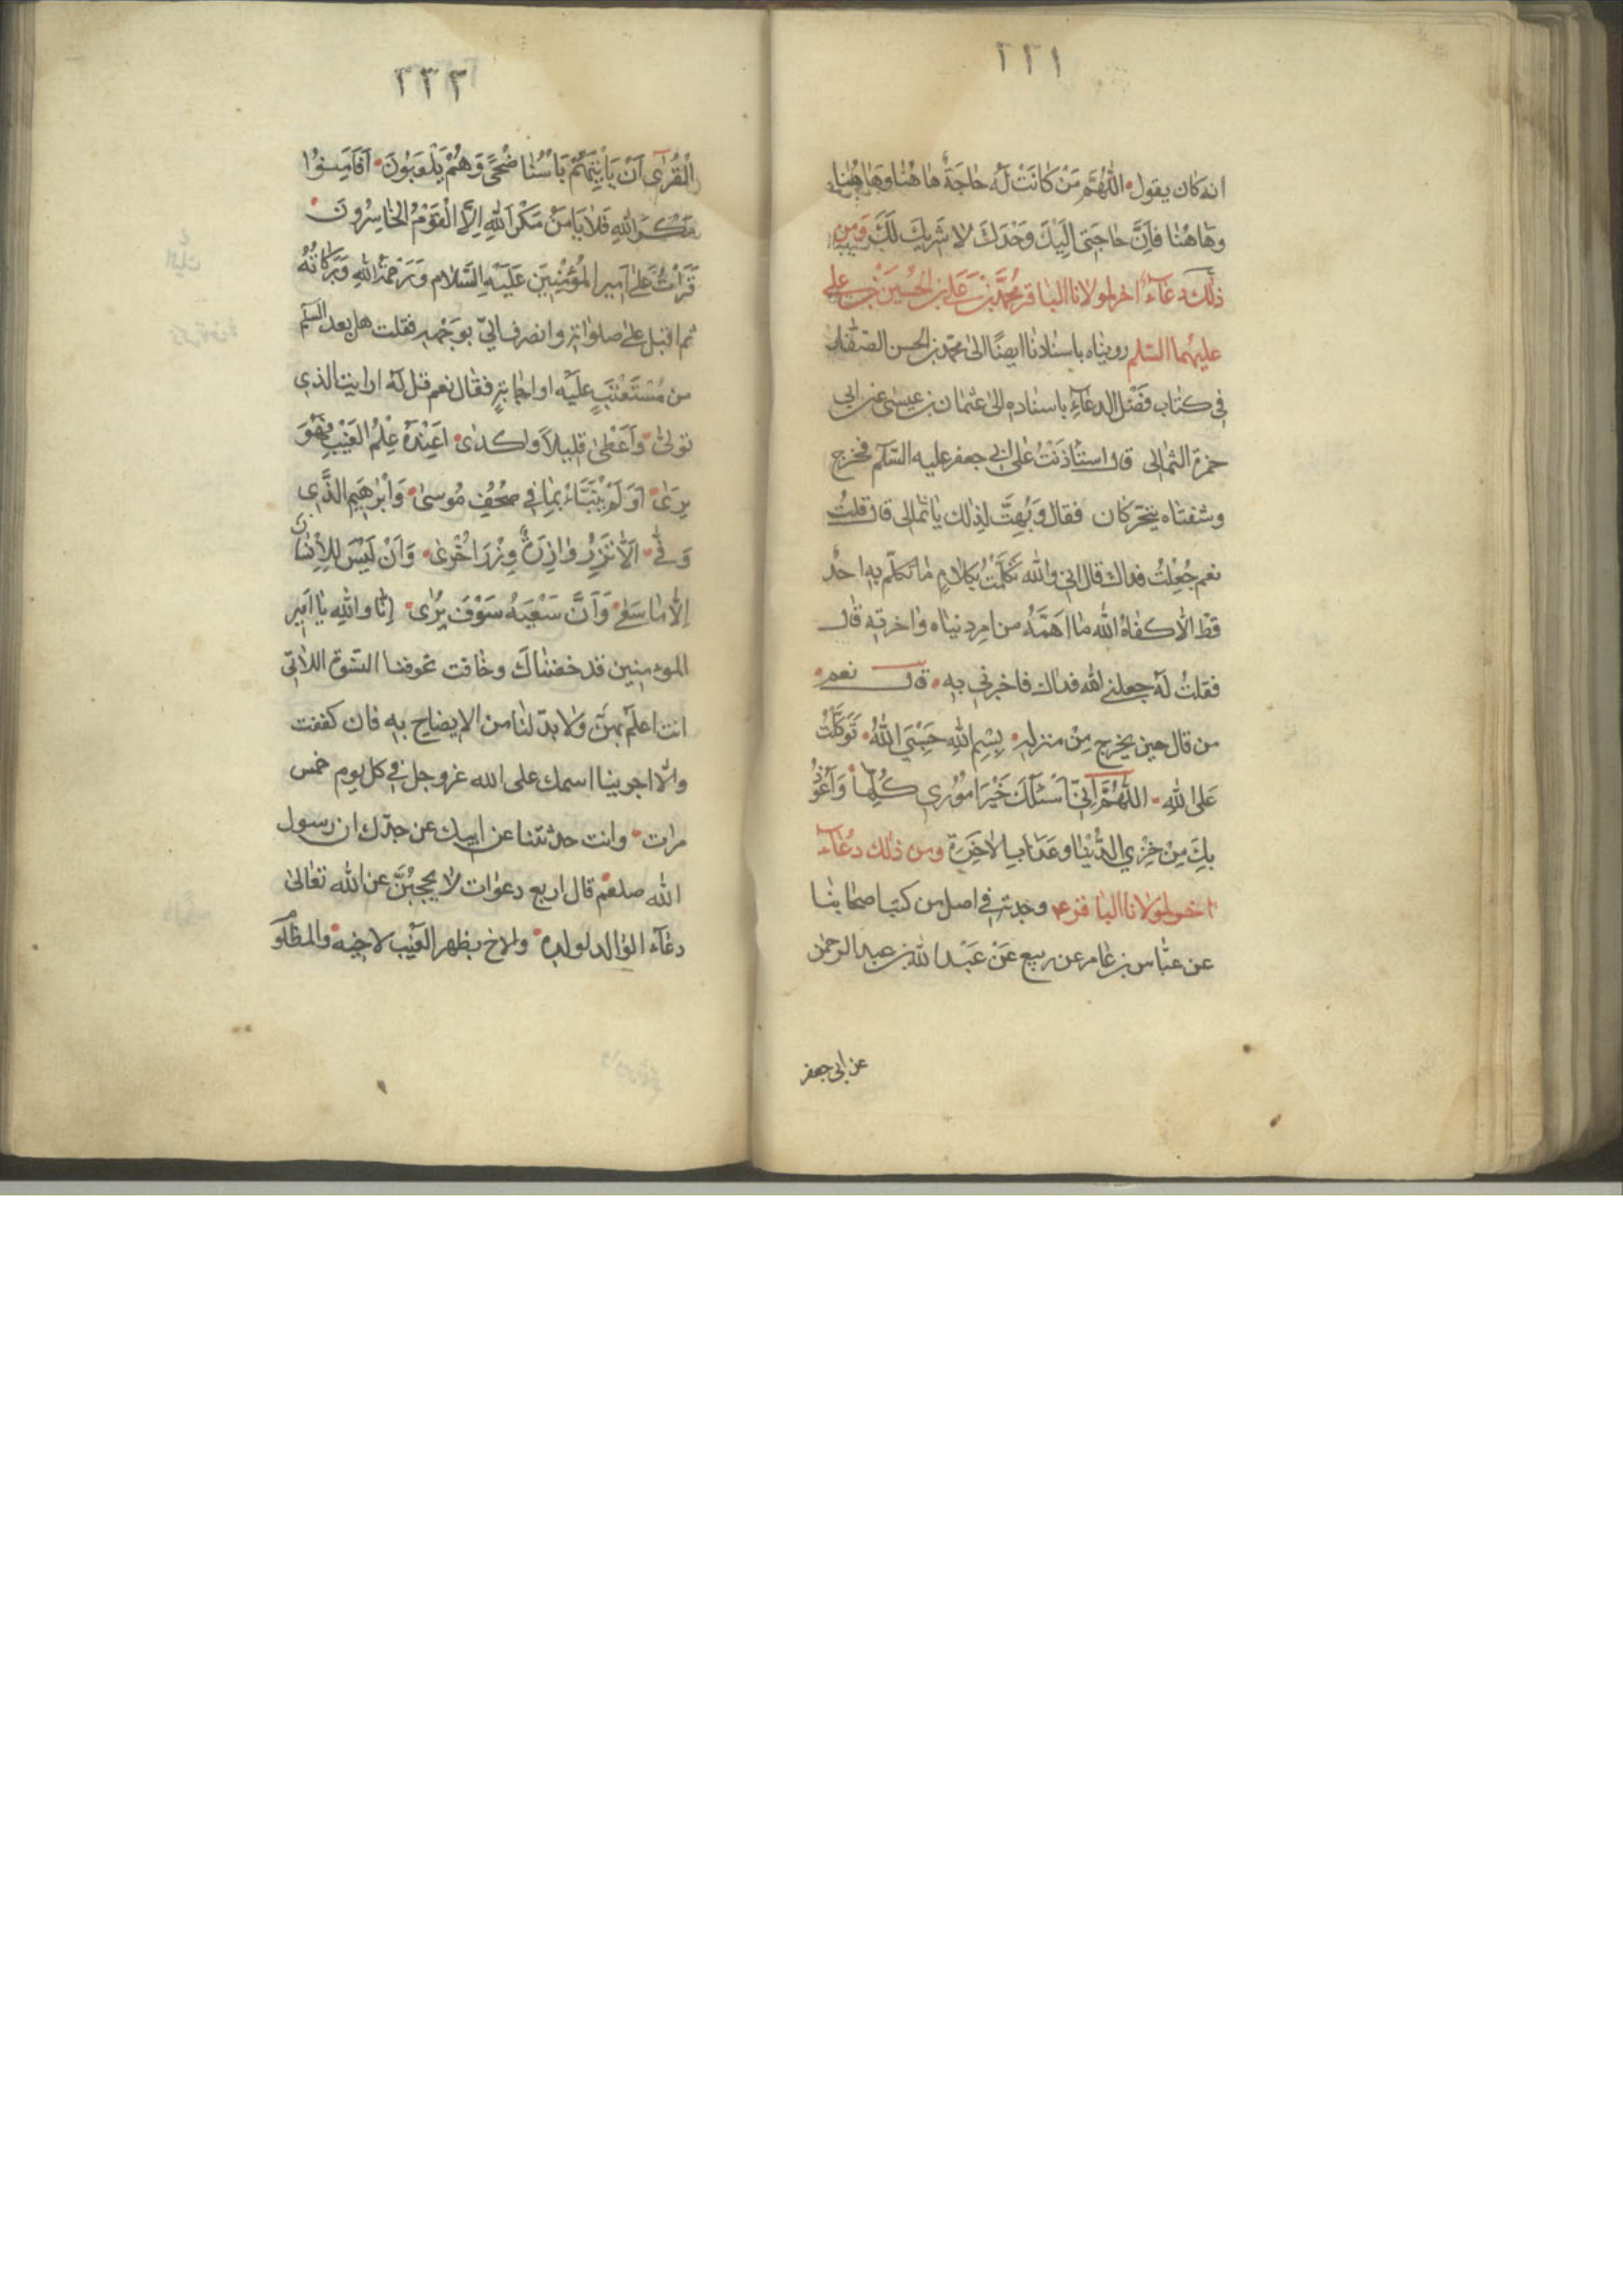 ٢٢١
انه كان يقول اللهُمَّ مَنْ كَانَتْ لَهُ حَاجَةٌ هَا هُنا وَهَا هُنا
وهَا هُنا فَاِنَّ حَاجَتى اِلَيْكَ وَحْدَكَ لا شَريكَ لَكَ وَمن
ذلك دعآء اخر لمولانا الباقر محمد بن علي بن الحسين بن علي
عليهما السلم رويناه باسنادنا ايضًا الى محمد بن الحسن الصفار
في كتاب فضل الدعآءِ باسناده الى عثمان بن عيسى عن ابى
حمزة الثمالى قال استاذنتُ على ابى جعفر عليه السّلم فخرج
وشفتاه يتحركان فقال وَبُهِتَّ لِذلك يا ثمالى قال قلتُ
نعم جُعِلتُ فداك قال انى والله تَكَلَّمْتُ بكلامٍ ما تكلّم به احدٌ
قطّ الاّ كفاهُ الله ما اهمّهُ من امر دنياه واخرته قال
فقلتُ لَهُ جعلنى الله فداك فاخبرنى به قال نعم
من قال حين يخرج مِنْ منزله بِسْمِ اللهِ حَسْبِيَ اللهُ تَوَكَّلْتُ
عَلَى اللهِ اللّهُمَّ اِنّى اَسْئَلُكَ خَيْرَ اُمُوري كُلِّها وَاَعُوذُ
بِكَ مِنْ خِزْيِ الدُّنْيا وعَذابِ الاخِرَةِ ومن ذلك دعآء
اخر لمولانا الباقر ع وجدته في اصل من كتب اصحابنا
عن عباس بن عامر عن ربيع عَنْ عَبْد الله بن عبد الرحمن
عن ابى جعفر
٢٢٢
الْقُرٰى اَنْ يَاْتِيَهُمْ بَاْسُنا ضُحىً وَهُمْ يَلْعَبُونَ اَفَاَمِنُوا
مَكْرَ اللهِ فَلا يَاْمَنُ مَكْرَ اللهِ اِلاَّ الْقَوْمُ الْخاسِرُونَ
قَرَاْتُ عَلى اَميرِ المُؤْمِنينَ عَلَيْهِ السَّلام وَرَحْمَةُ اللهِ وَبَرَكاتُهُ
ثم اقبل على صلواته وانصرف الىّ بوجهه فقلت هل بعد السلم
من مُسْتَعْتَبٍ عليه او اجابةٍ فقال نعم قل لَهُ ارايت الذي
تولىٰ وَاَعْطىٰ قليلاً واكدى اَعِنْدَهُ عِلْمُ الغَيْبِ فَهُوَ
يرىٰ اَوَ لَمْ يُنَبَّاْ بِما في صُحُفِ مُوسىٰ وَاِبْراهيمَ الَّذي
وَفّٰى اَلاّ تَزِرُ وازِرَةٌ وِزْرَ اُخْرىٰ وَاَنْ لَيْسَ لِلاِنْسانِ
اِلاّ ما سَعىٰ وَاَنَّ سَعْيَهُ سَوْفَ يُرىٰ اِنّا والله يا امير
المؤمنين قد خفناك وخافت لخوفنا النسّوة اللاتى
انت اعلم بهنّ ولا بدّ لنا من الايضاح به فان كففت
والاّ اجرينا اسمك على الله عزوجل في كل يوم خمس
مرات وانت حدثتنا عن ابيك عن جدّك ان رسول
الله صلعم قال اربع دعوات لا يحجبن عن الله تعالىٰ
دعآء الوالد لولده والاخ بظهر الغيب لاخيه والمظلو